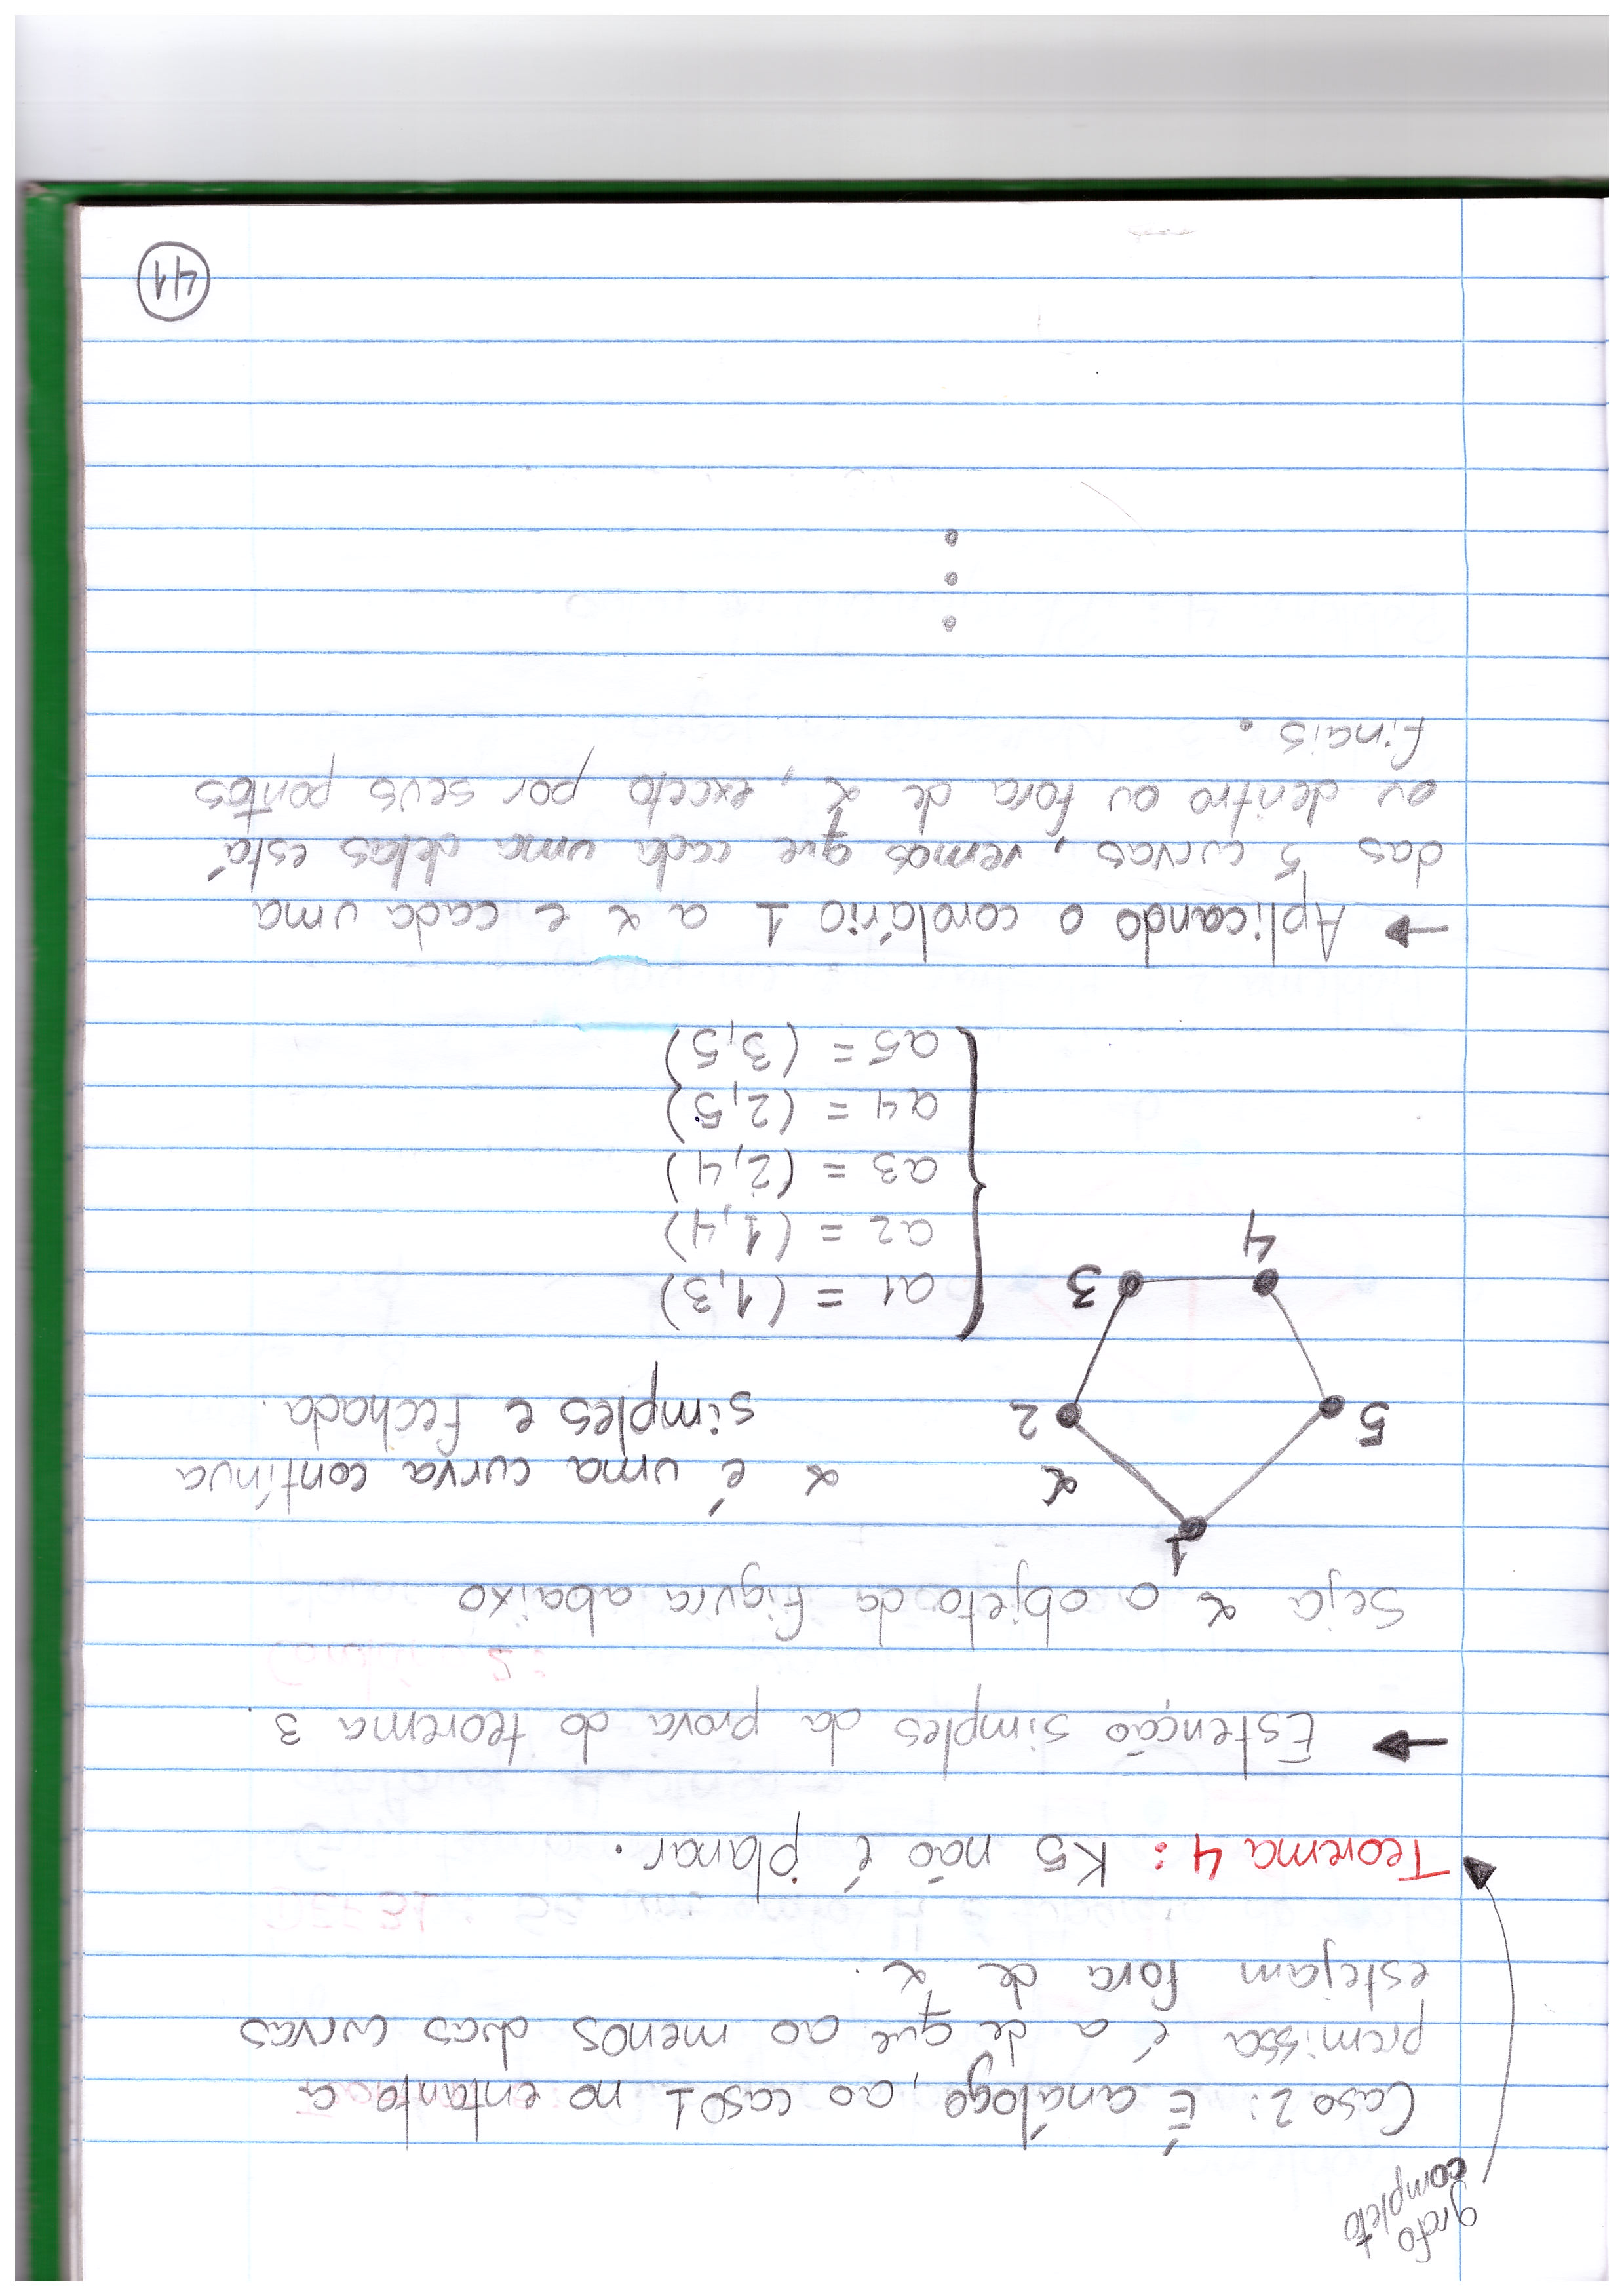 grafo
completo
Caso 2: É análogo, ao caso 1 no entanto a
premissa é a de que ao menos duas curvas
estejam fora de α.
Teorema 4: K5 não é planar.
→ Estenção simples da prova do teorema 3.
Seja α o objeto da figura abaixo
1
α
5
2
3
4
α é uma curva contínua
simples e fechada.
a1 = (1,3)
a2 = (1,4)
a3 = (2,4)
a4 = (2,5)
a5 = (3,5)
→ Aplicando o corolário 1 a α e cada uma
das 5 curvas, vemos que cada uma delas está
ou dentro ou fora de α, exceto por seus pontos
finais.
41